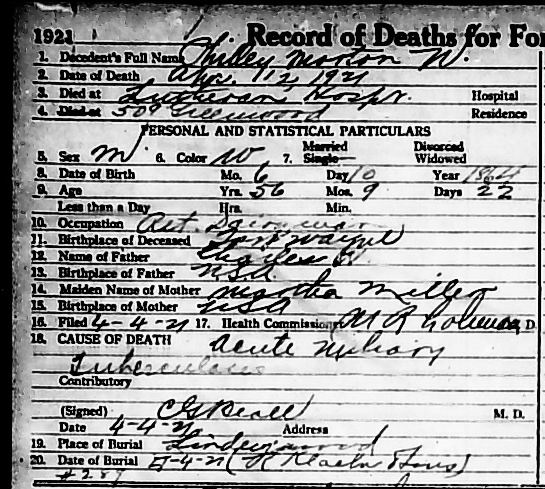 1921 Record of Deaths for For
1. Decedent's Full Name Philley Morton W.
2. Date of Death Apr. 1 2 1921
3. Died at Lutheran Hosp. Hospital
4. Died at 509 Greenwood Residence
PERSONAL AND STATISTICAL PARTICULARS
5. Sex M. 6. Color W 7. Married Single Divorced Widowed
8. Date of Birth Mo. 6 Day 10 Year 1864
9. Age Yrs. 56 Mos. 9 Days 22
Less than a Day Hrs. Min.
10. Occupation Ret.
11. Birthplace of Deceased Fort Wayne
12. Name of Father
13. Birthplace of Father USA
14. Maiden Name of Mother Martha Miller
15. Birthplace of Mother USA
16. Filed 4-4-21 17. Health Commissioner D.
18. CAUSE OF DEATH Acute Miliary
Tuberculosis
Contributory
(Signed) CG Beall M. D.
Date 4-4-21 Address
19. Place of Burial Lindenwood
20. Date of Burial 5-4-21 ( Sons)